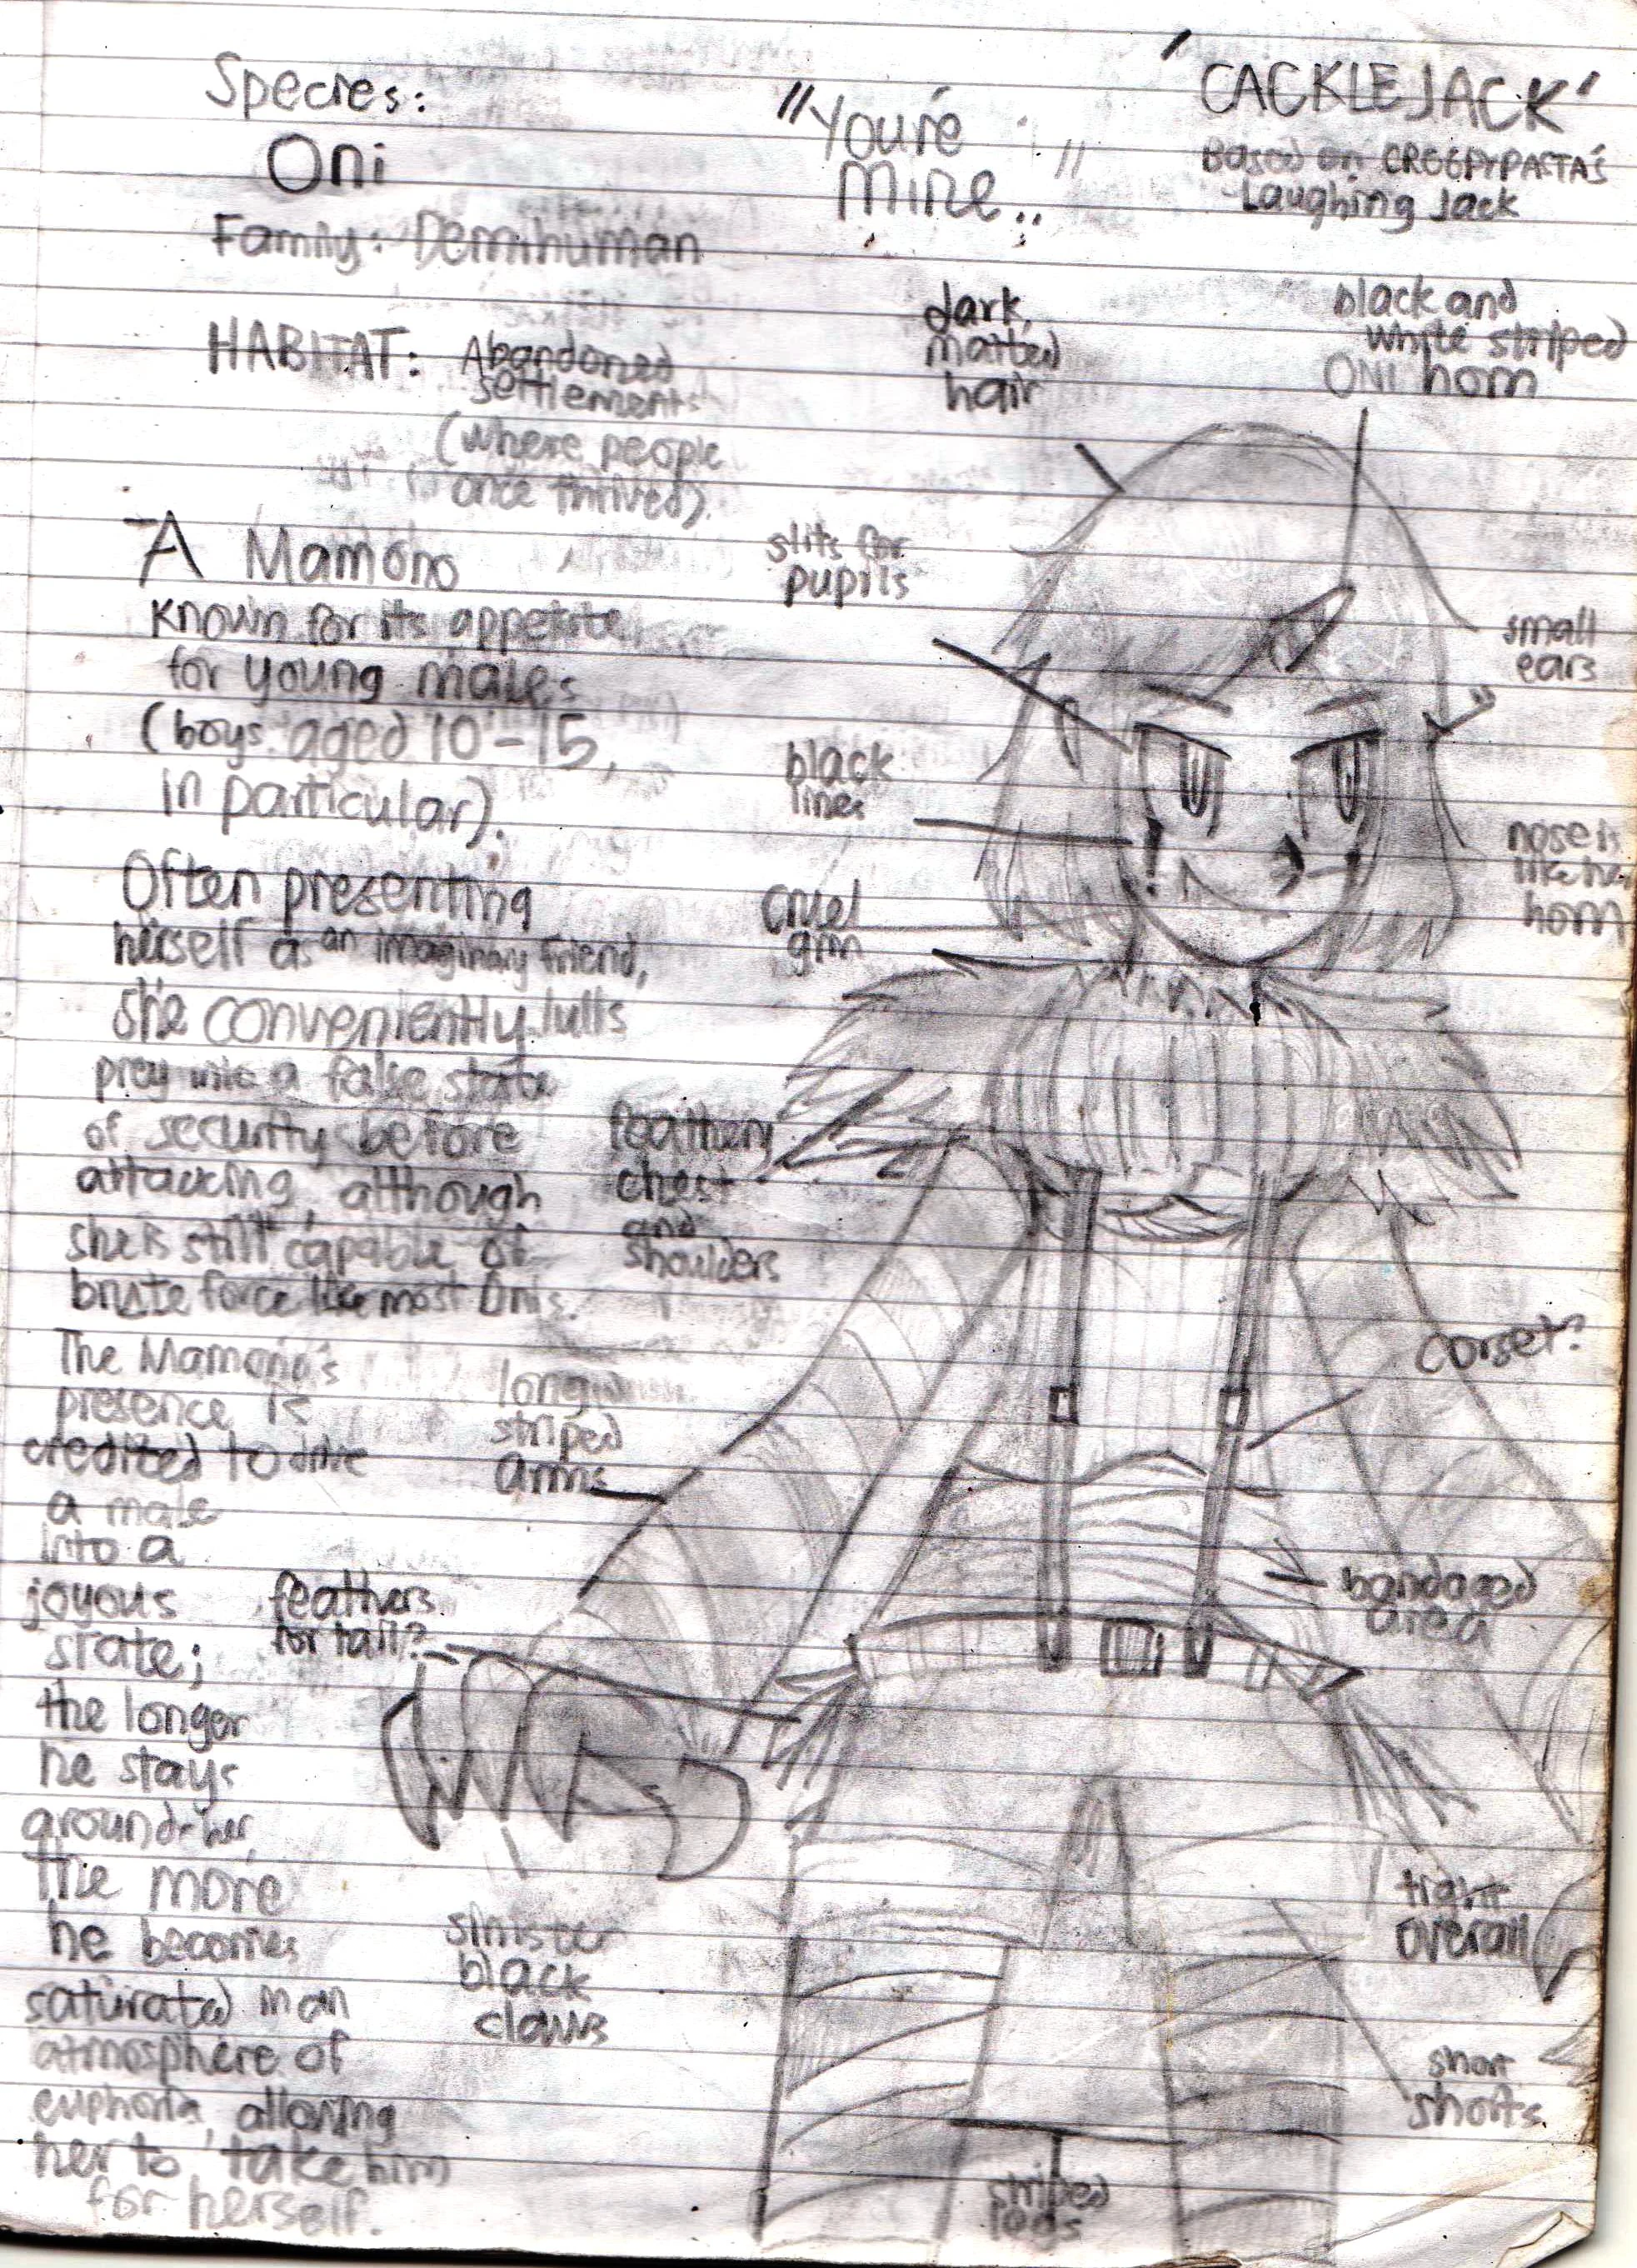 Species:
Oni
Family: Demihuman
HABITAT: Abandoned
settlements
(where people
once thrived).
"You're
Mine.."
'CACKLEJACK'
Based on CREEPYPASTA's
Laughing Jack
A Mamono
known for its appetite
for young males
(boys aged 10-15,
in particular).
Often presenting
herself as an imaginary friend,
she conveniently lulls
prey into a false state
of security before
attacking, although
she is still capable of
brute force like most Onis.
The Mamono's
presence is
credited to drive
a male
into a
joyous
state;
the longer
he stays
around her,
the more
he becomes
saturated in an
atmosphere of
euphoria, allowing
her to take him
for herself.
dark,
matted
hair
black and
white striped
ONI horn
slits for
pupils
small
ears
black
lines
nose is
like her
horn
cruel
grin
feathery
chest
and
shoulders
corset?
long
striped
arms
bandaged
area
feathers
for tail?
sinister
black
claws
tight
overall
short
shorts
striped
legs